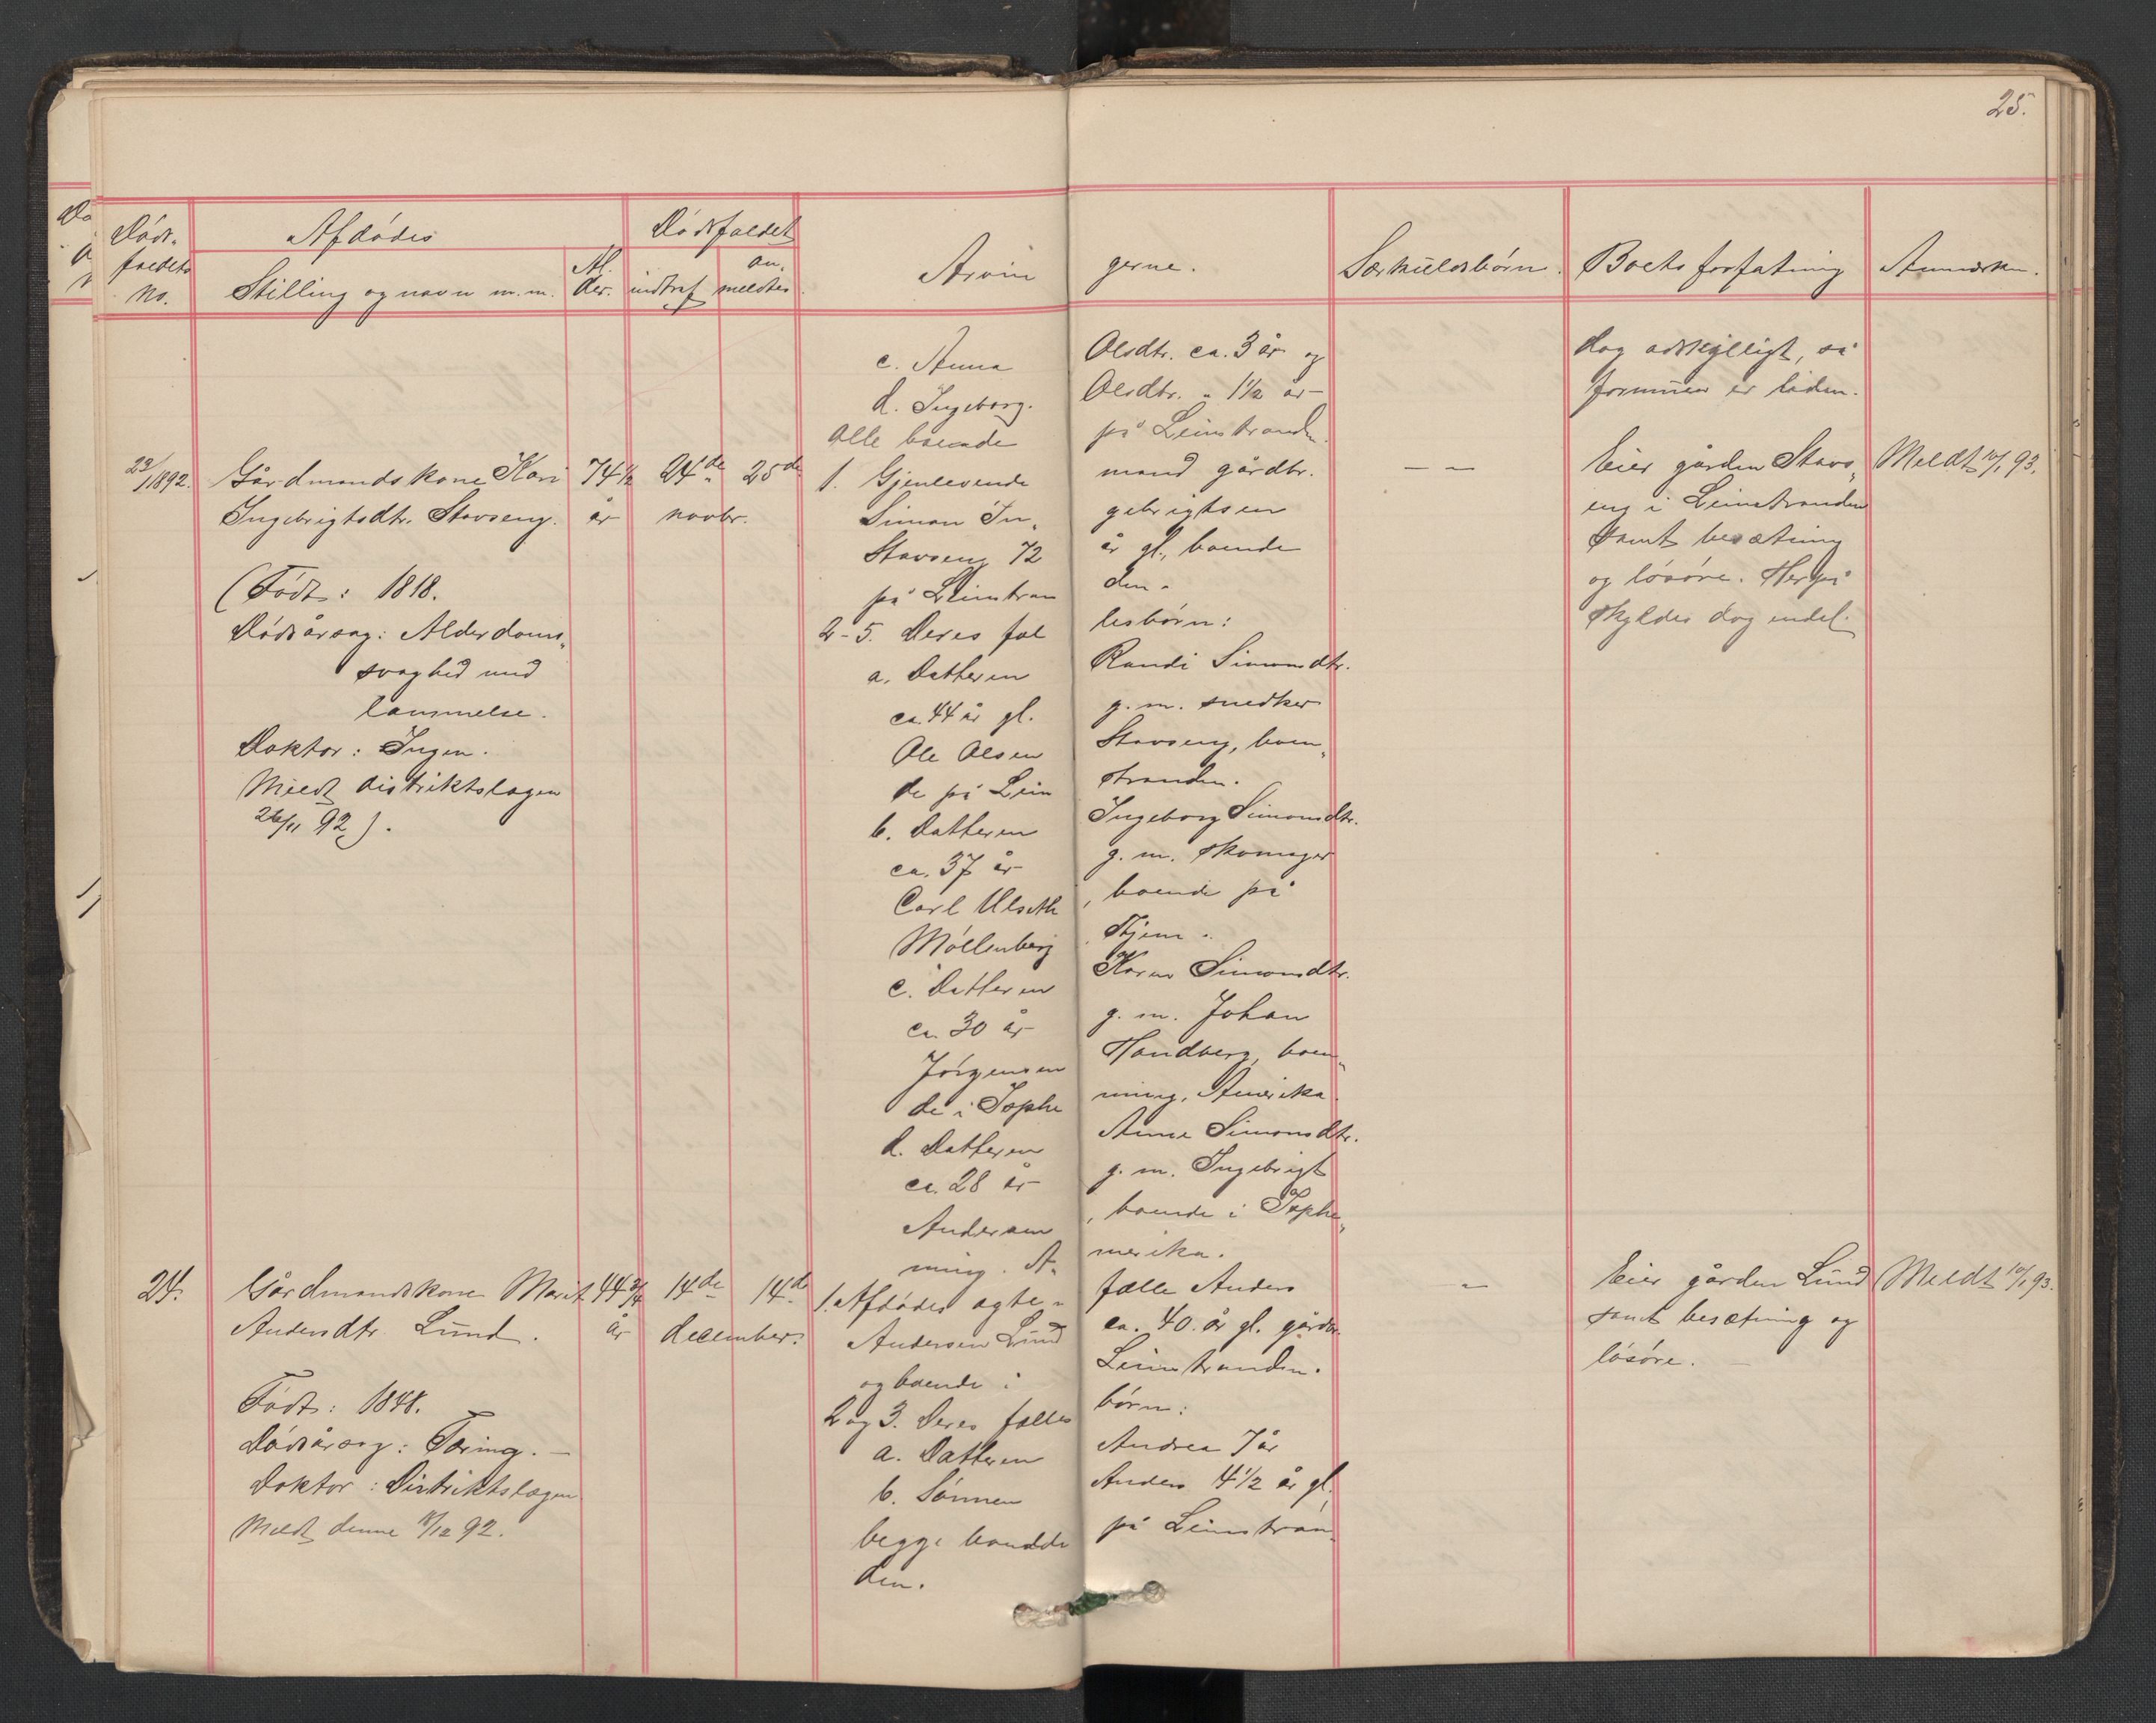 25.
Døds-
faldets
no.
Afdødes
Stilling og navn m. m.
Al-
der.
Dødsfaldet
indtraf
an-
meldtes
Arvin gerne.
Særkuldsbørn.
Boets forfatning
Anmerkn.
c. Anna Olsdtr. ca. 3 år og
d. Ingeborg Olsdtr. " 1½ år -
Alle boende på Leinstranden.
dog adskilligt, så
formuen er liden.
23/1892.
Gårdmandskone Kari
Ingebrigtsdtr. Stavseng.
(Født: 1818.
Dødsårsag: Alderdoms„
svaghed med
lammelse.
Doktor: Ingen.
Meldt distriktslægen
26/11 92).
74½
år
24de
25de
novbr.
1. Gjenlevende mand gårdbr.
Simon In„ gebrigtsen
Stavseng 72 år gl., boende
på Leinstran den.
2-5. Deres fæl lesbørn:
a. Datteren Randi Simonsdtr.
ca. 44 år gl. g. m. snedker
Ole Olsen Stavseng, boen„
de på Lein stranden.
b. Datteren Ingeborg Simonsdtr.
ca. 37 år g. m. skomager
Carl Ulseth, boende på
Møllenberg, Thjem.
c. Datteren Karen Simonsdtr.
ca. 30 år g. m. Johan
Jørgensen Handberg, boen„
de i Ishpe ming, Amerika.
d. Datteren Anne Simonsdtr.
ca. 28 år g. m. Ingebrigt
Andersen, boende i Ishpe„
ming. A„ merika.
— —
Eier gården Stavs„
eng i Leinstranden
samt besætning
og løsøre. Herpå
skyldes dog endel.
Meldt 10/1 93.
24.
Gårdmandskone Marit
Andersdtr. Lund.
Født: 1848.
Dødsårsag: Tæring. —
Doktor: Distriktslægen
Meldt denne 18/12 92.
44 3/4
år
14de
14de
december.
1. Afdødes ægte- fælle Anders
Andersen Lund ca. 40 år gl. gårdbr.
og boende i Leinstranden.
2 og 3. Deres fælles børn:
a. Datteren Andrea 7 år
b. Sønnen Anders 4½ år gl.,
begge boende på Leinstran„
den.
-
Eier gården Lund
samt besætning og
løsøre. —
Meldt 10/1 93.